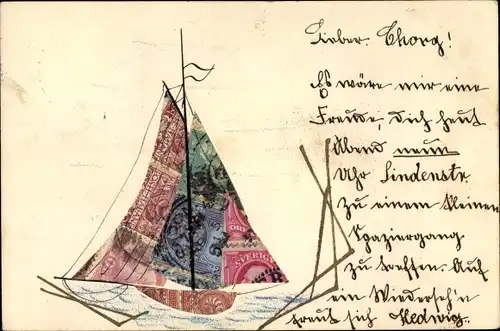 Lieber Chorg!
Es wäre mir eine
Freude, dich heut
Abend neun
Uhr Lindenstr.
zu einem kleinen
Spaziergang
zu treffen. Auf
ein Wiederseh'n
freut sich Hedwig
SVERIGE